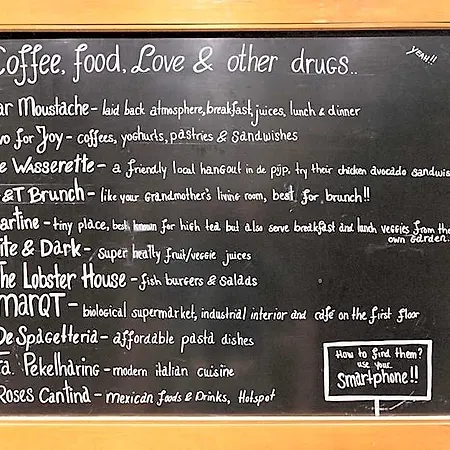 Coffee, food, Love & other drugs..
YEAH!!
ar Moustache - laid back atmosphere, breakfast, juices, lunch & dinner
wo for Joy - coffees, yoghurts, pastries & sandwishes
e Wasserette - a friendly local hangout in de pijp. try their chicken avocado sandwis
&T Brunch - like your grandmother's living room, best for brunch!!
artine - tiny place, best known for high tea but also serve breakfast and lunch veggies from the
own garden..
ite & Dark - super healty fruit/veggie juices
The Lobster House - fish burgers & salads
MARQT - biological supermarket, industrial interior and café on the first floor
De Spagetteria - affordable pasta dishes
Fa. Pekelharing - modern italian cuisine
Roses Cantina - mexican foods & Drinks, Hotspot
How to find them?
use your
Smartphone!!